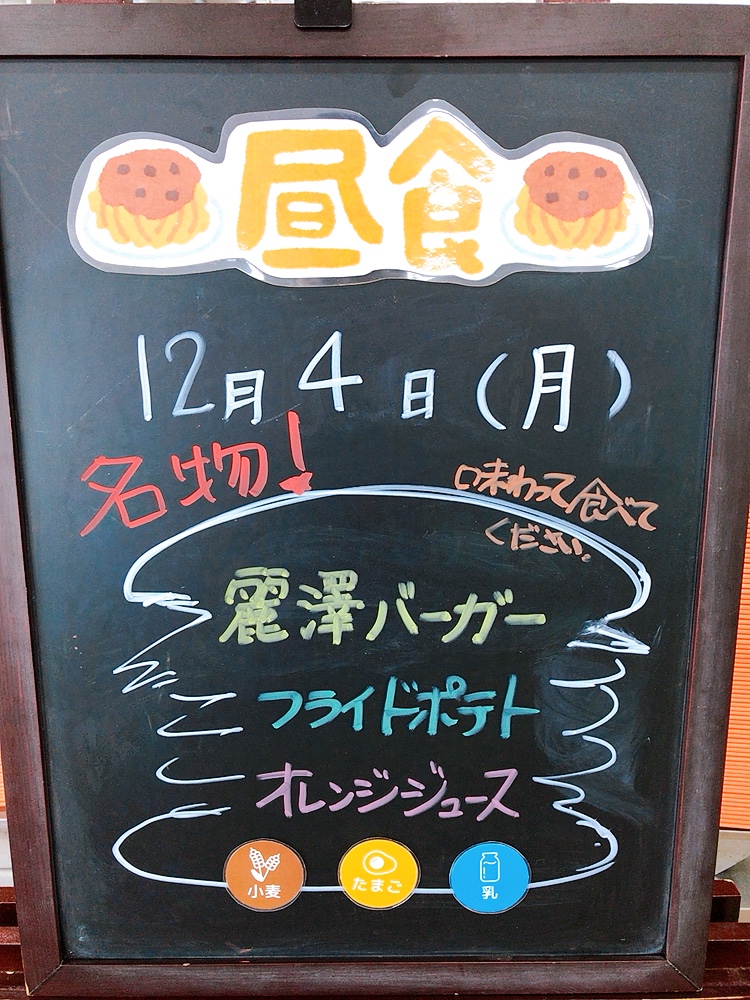 昼食
12月4日(月)
名物!
味わって食べて
ください。
麗澤バーガー
フライドポテト
オレンジジュース
小麦
たまご
乳